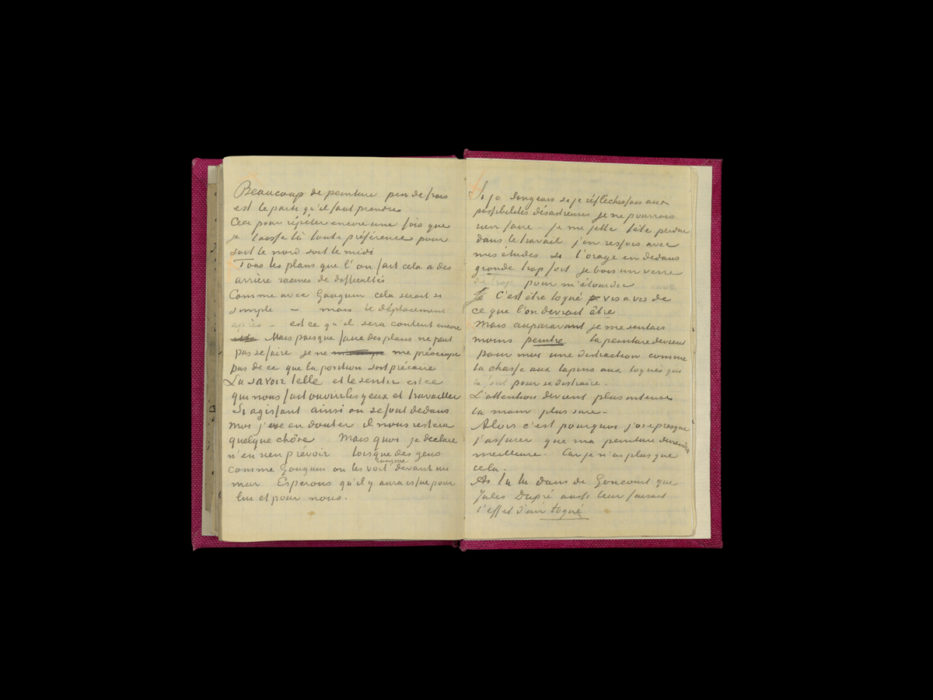 Beaucoup de peinture peu de frais
est le parti qu'il faut prendre
Ceci pour répéter encore une fois que
je laisse là toute préférence pour
soit le nord soit le midi
Tous les plans que l'on fait cela a des
arrière racines de difficultés
Comme avec Gauguin cela serait si
simple – mais le déplacement
après – est ce qu'il sera content encore
Mais puisque faire des plans ne peut
pas se faire je ne me préoccupe
pas de ce que la position soit précaire
La savoir telle et le sentir est ce
qui nous fait ouvrir les yeux et travailler
Si agissant ainsi on se fout dedans
moi j'ose en douter il nous restera
quelque chôse Mais quoi je déclare
n'en rien prévoir lorsque des gens
comme Gauguin on les voit devant un
mur Esperons qu'il y aura issue pour
lui et pour nous.
Si je songeais si je réfléchissais aux
possibilités désastreuses je ne pourrais
rien faire je me jette tête perdue
dans le travail j'en ressors avec
mes études si l'orage en dedans
gronde trop fort je bois un verre
de trop pour m'étourdir
C'est être toqué vis a vis de
ce que l'on devrait être
Mais auparavant je me sentais
moins peintre la peinture devient
pour moi une distraction comme
la chasse aux lapins aux toqués qui
la font pour se distraire.
L'attention devient plus intense
la main plus sure –
Alors c'est pourquoi j'ose presque
t'assurer que ma peinture deviendra
meilleure. Car je n'ai plus que
cela.
As tu lu dans de Goncourt que
Jules Dupré aussi leur faisait
l'effet d'un toqué